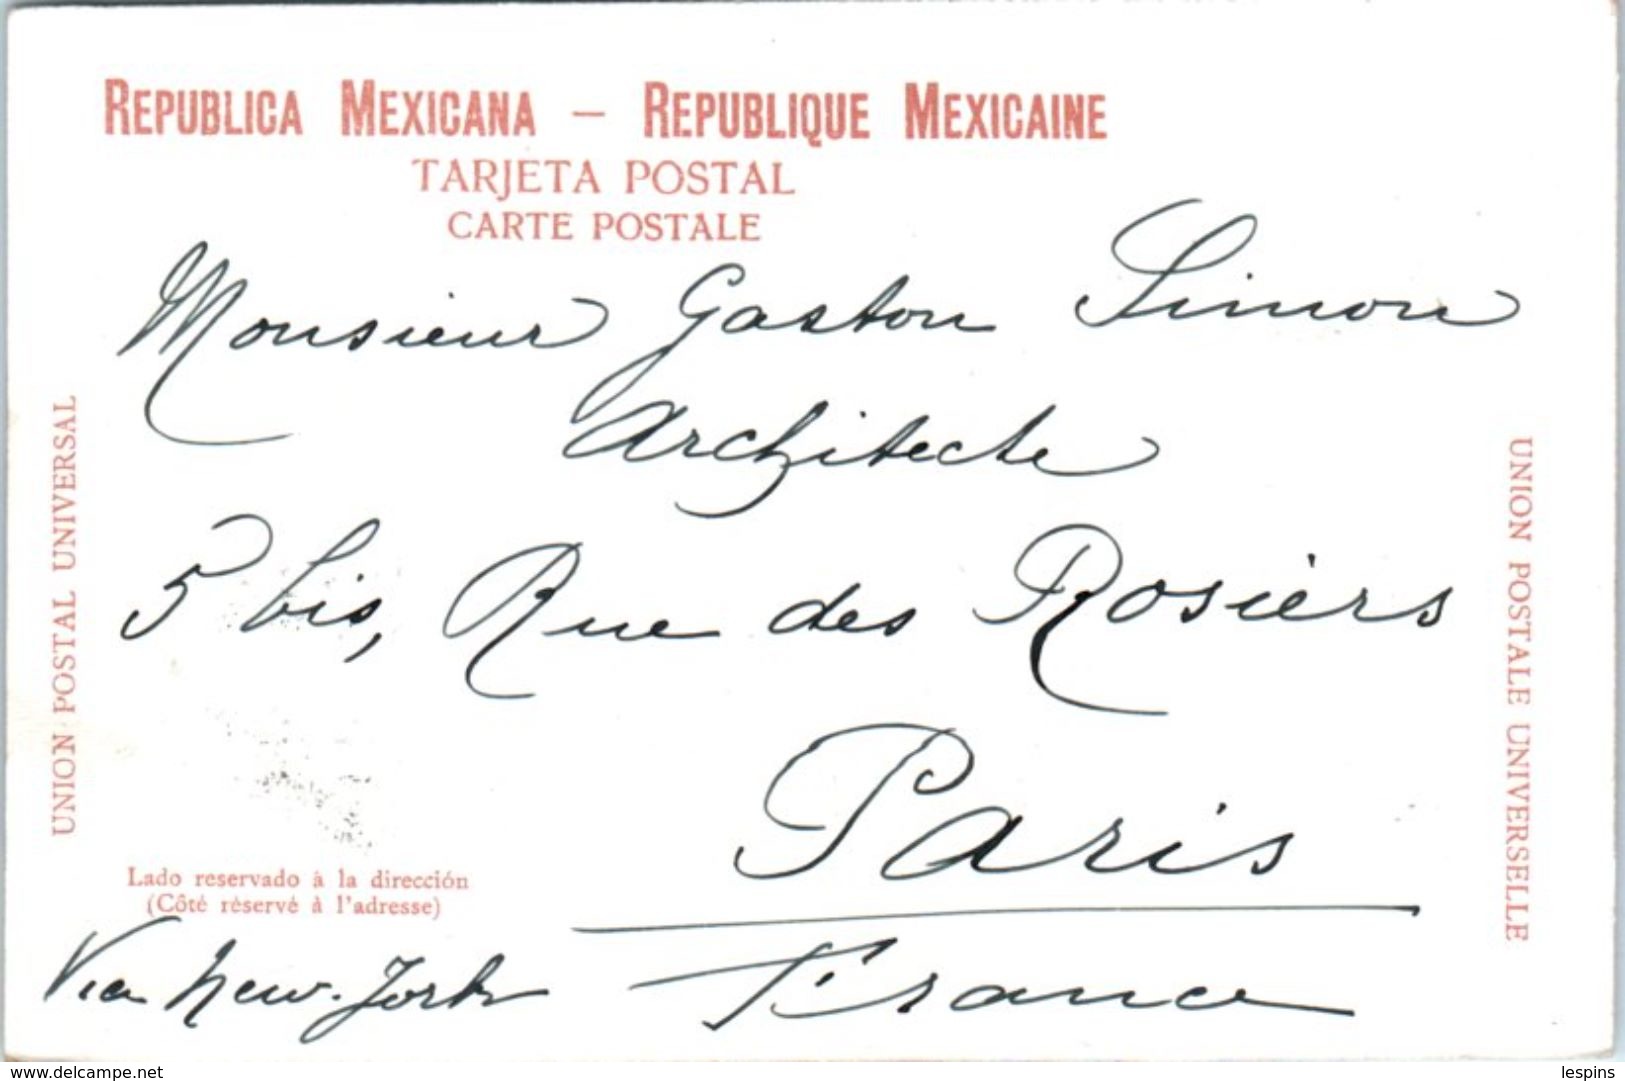 REPUBLICA MEXICANA — REPUBLIQUE MEXICAINE
TARJETA POSTAL
CARTE POSTALE
Monsieur Gaston Simon
Architecte
5 bis, Rue des Rosiers
Paris
France
Via New-York
UNION POSTAL UNIVERSAL
UNION POSTALE UNIVERSELLE
Lado reservado à la dirección
(Côté réservé à l'adresse)
www.delcampe.net
lespins